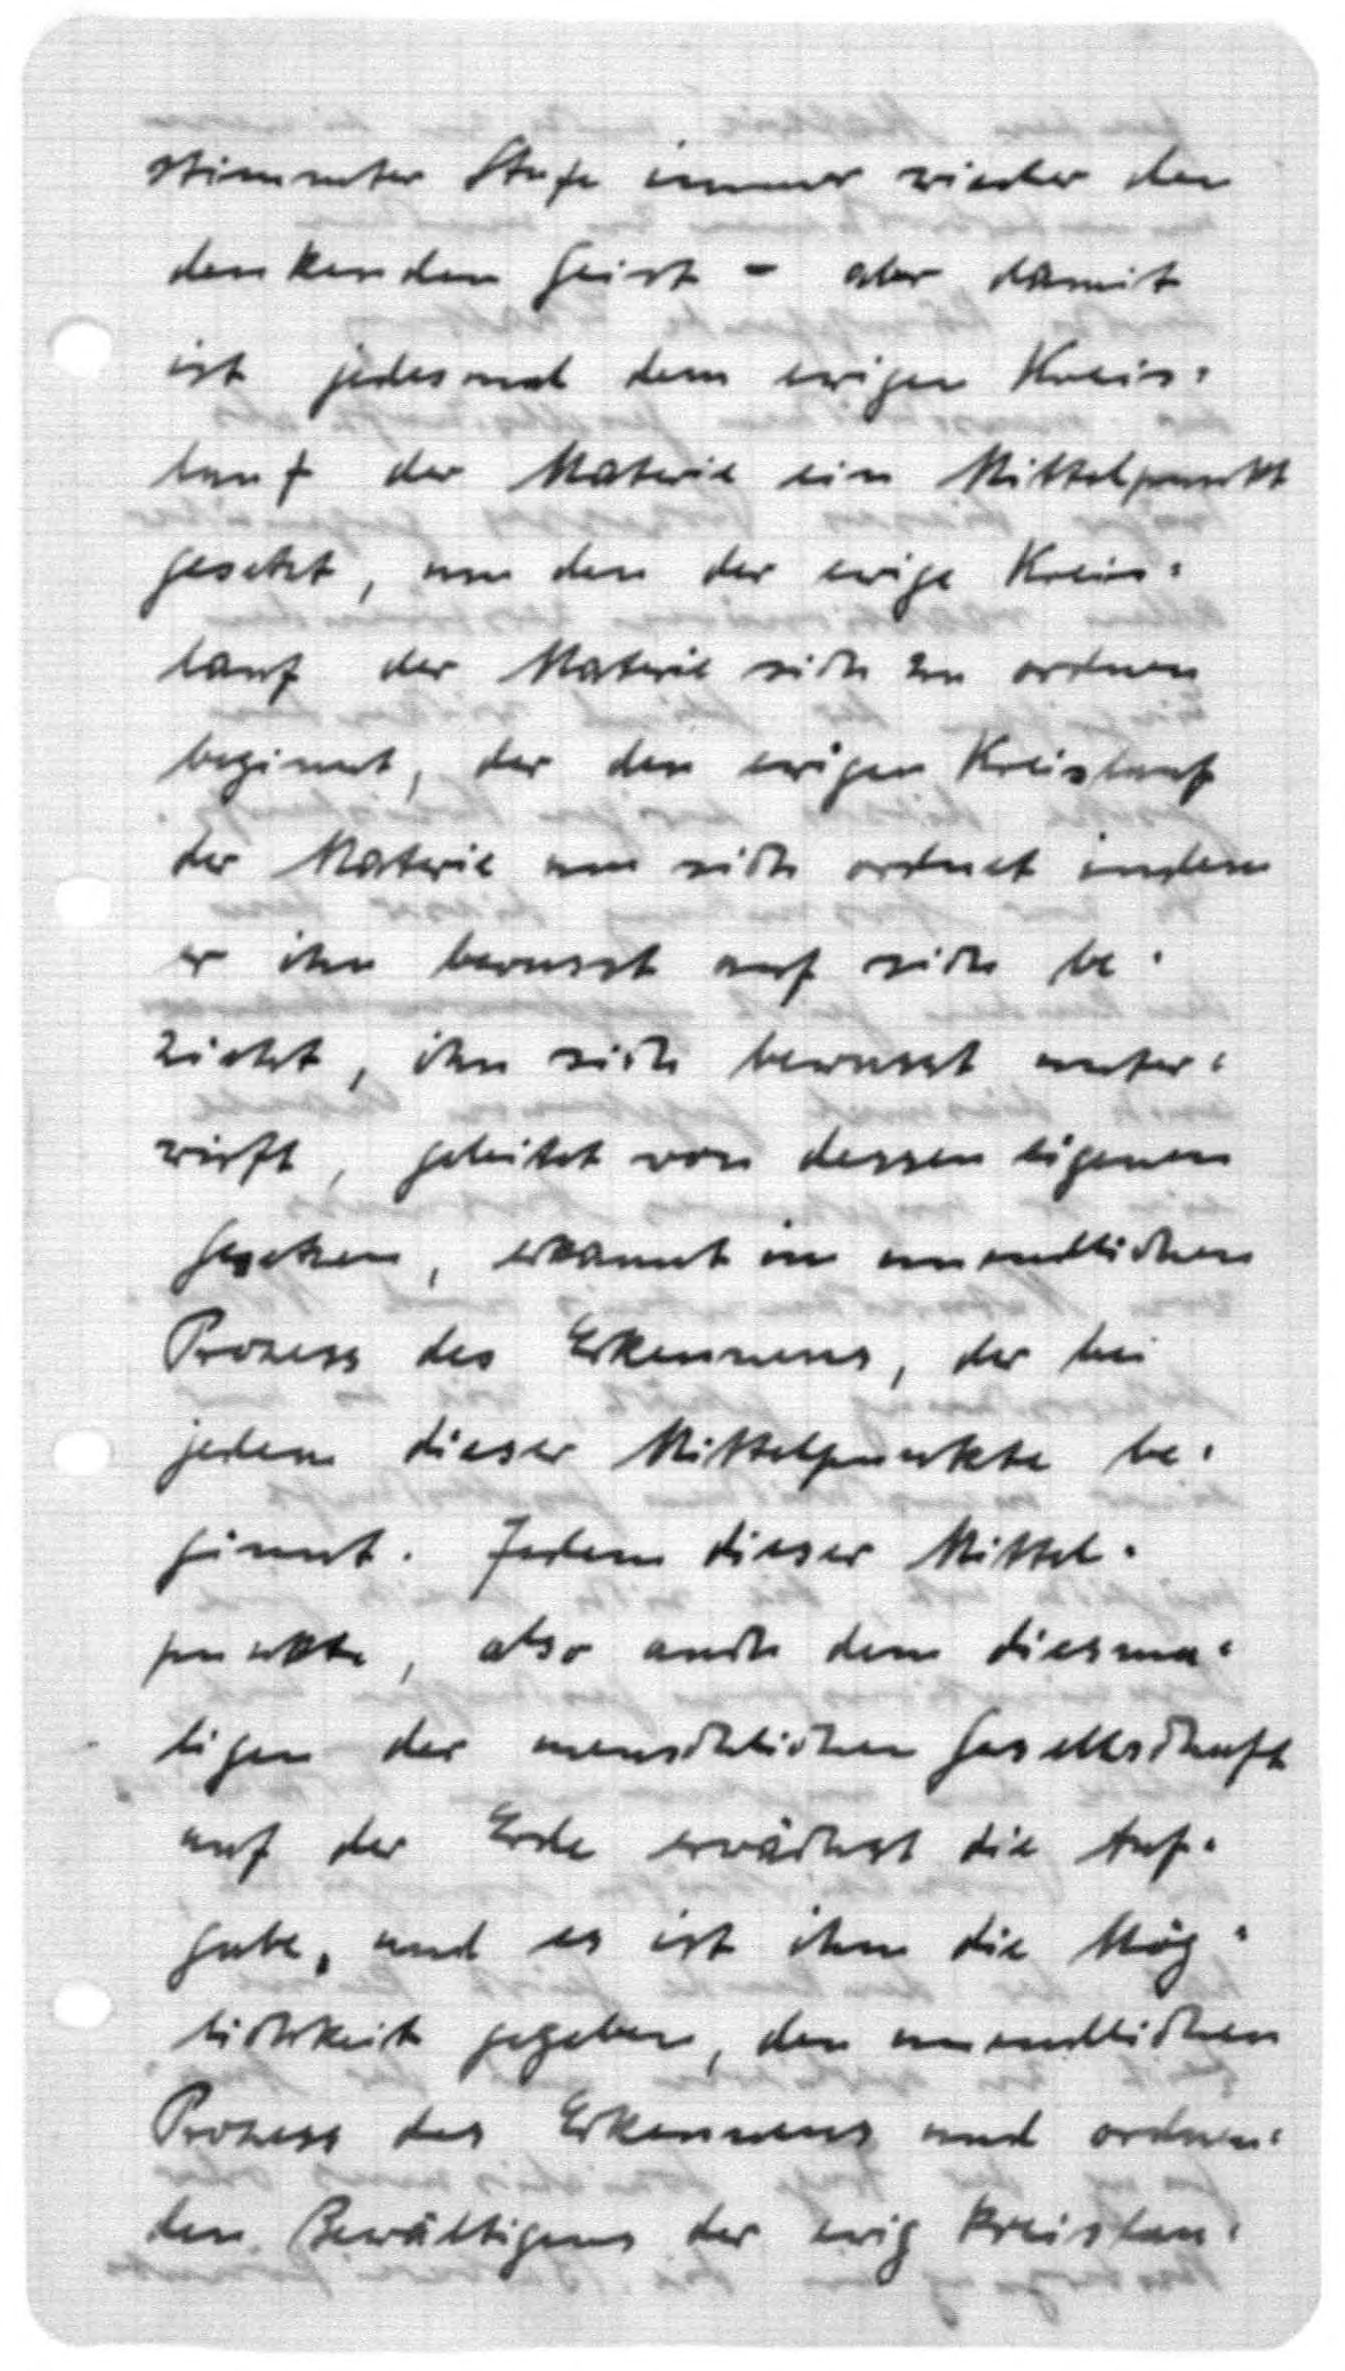 stimmter Stufe immer wieder den
denkenden Geist - aber damit
ist jedesmal dem ewigen Kreis-
lauf der Materie ein Mittelpunkt
gesetzt, um den der ewige Kreis-
lauf der Materie sich zu ordnen
beginnt, der den ewigen Kreislauf
der Materie um sich ordnet indem
er ihn bewusst auf sich be-
zieht, ihn sich bewusst unter-
wirft, geleitet von dessen eigenen
Gesetzen, erkannt im unendlichen
Prozess des Erkennens, der bei
jedem dieser Mittelpunkte be-
ginnt. Jedem dieser Mittel-
punkte, also auch dem diesma-
ligen der menschlichen Gesellschaft
auf der Erde erwächst die Auf-
gabe, und es ist ihm die Mög-
lichkeit gegeben, den unendlichen
Prozess des Erkennens und ordnen-
den Bewältigens der ewig kreislau-